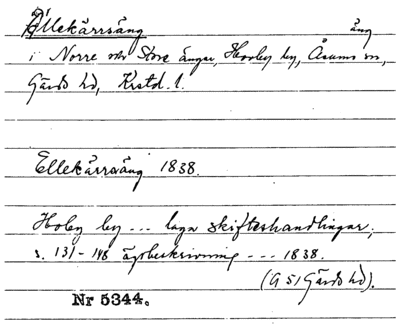 Ällekärrsäng äng
i Norre och Store ängar, Hovby by, Åsums sn,
Gärds hd, Krstd. l.
Ellekärrsäng 1838.
Hoby by --- laga skifteshandlingar,
s. 131-148 ägobeskrivning --- 1838.
(G 51 Gärds hd).
Nr 5344.